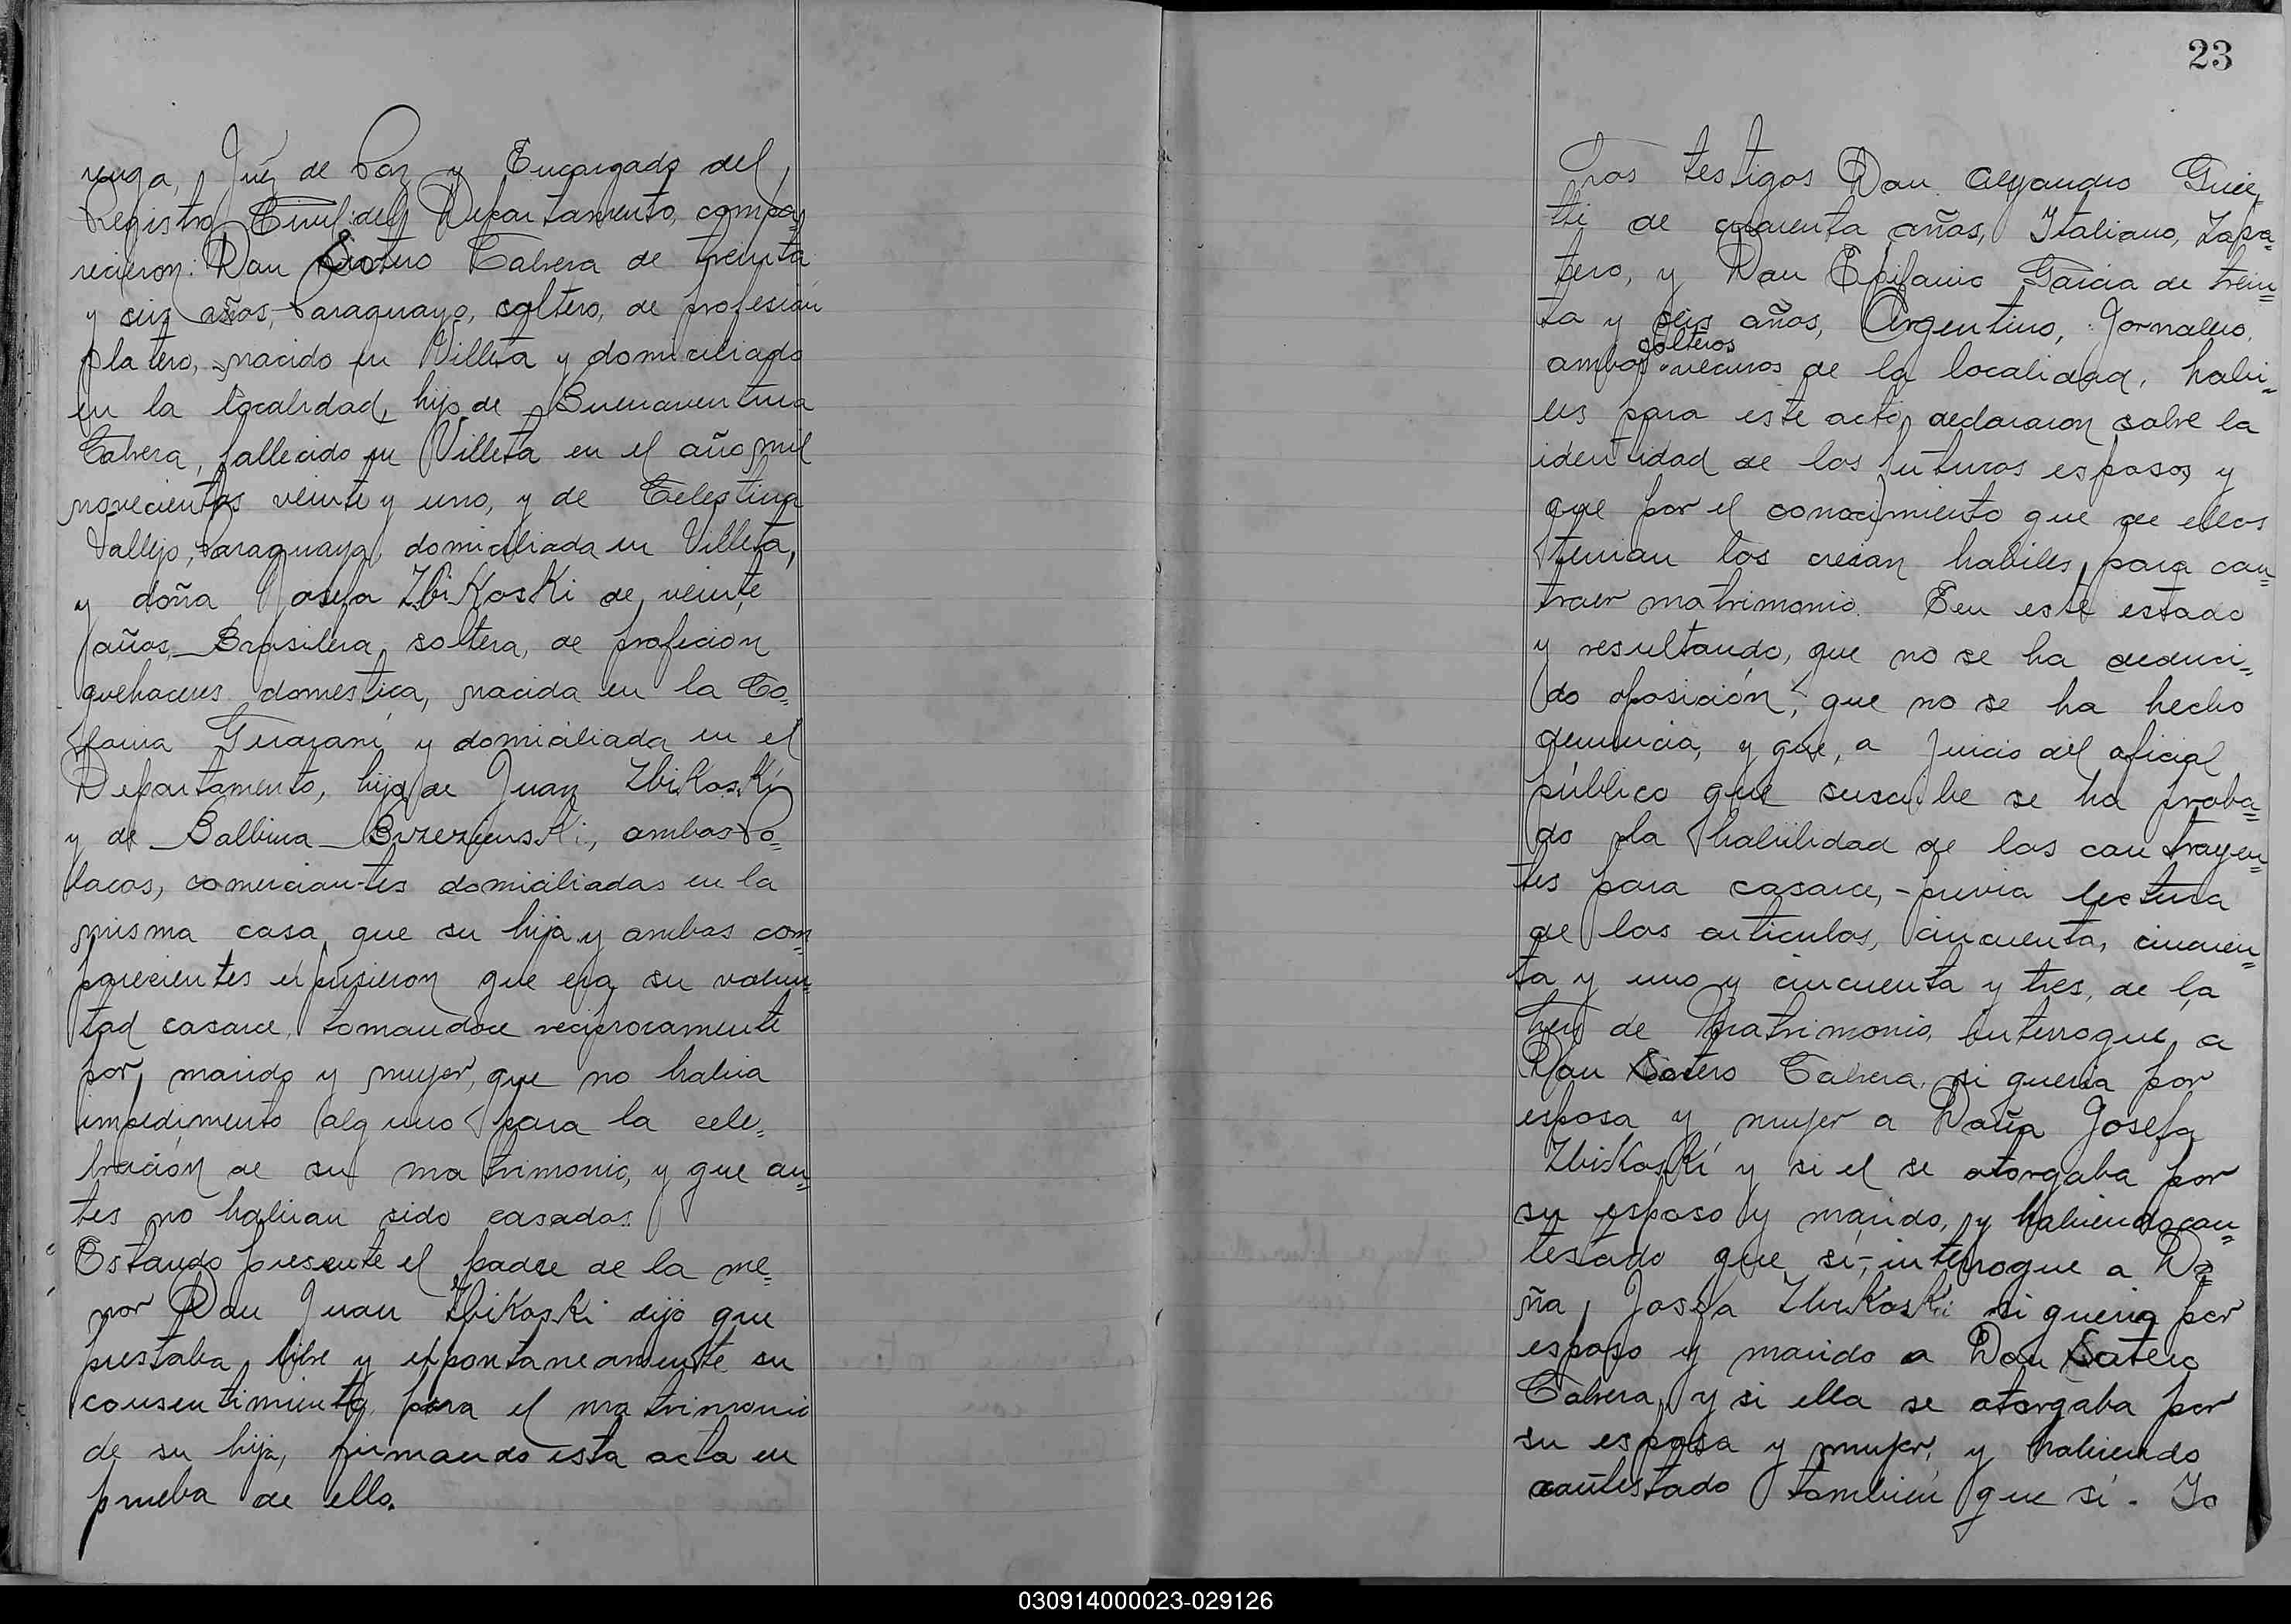 renga, Juez de Paz y Encargado del
Registro Civil del Departamento, compa=
recieron: Don Sotero Cabrera de treinta
y seis años, Paraguayo, soltero, de profesión
platero, nacido en Villeta y domiciliado
en la localidad, hijo de Buenaventura
Cabrera, fallecido en Villeta en el año mil
novecientos veinte y uno, y de Celestina
Vallejo, Paraguaya, domiciliada en Villeta,
y doña Josefa ZbiKosKi de veinte
años, Brasilera, soltera, de profecion
quehaceres domestica, nacida en la Co=
lonia Guarani y domiciliada en el
Departamento, hija de Juan ZbiKosKi
y de Balbina BrzezinsKi, ambos Po=
lacos, comerciantes domiciliados en la
misma casa que su hija y ambos com=
parecientes expusieron que era su volun=
tad casarce, tomandoce reciprocamente
por marido y mujer, que no habia
impedimento alguno para la cele=
bración de su matrimonio, y que an=
tes no habian sido casados.
Estando presente el padre de la me=
nor Don Juan ZbiKosKi dijo que
prestaba libre y expontaneamente su
consentimiento para el matrimonio
de su hija, firmando esta acta en
prueba de ello.
23
Los testigos Don Alejandro
de cuarenta años, Italiano, Zapa=
tero, y Don Epifanio Garcia de trein=
ta y seis años, Argentino, Jornalero,
solteros
ambos vecinos de la localidad, habi=
les para este acto, declararon sobre la
identidad de los futuros esposos y
que por el conocimiento que de ellos
tenian los creian habiles para con=
traer matrimonio. Een este estado
y resultando, que no se ha deduci=
do oposición, que no se ha hecho
denuncia, y que, a juicio del oficial
público que suscribe se ha proba=
do la habilidad de los contrayen=
tes para casarce, - previa lectura
de los articulos, cincuenta, cincuen=
ta y uno y cincuenta y tres, de la
Ley de Matrimonio, interrogue a
Don Sotero Cabrera, si queria por
esposa y mujer a Doña Josefa
ZbiKosKi y si el se otorgaba por
su esposo y marido, y habiendo con=
testado que sí, - interrogue a Do=
ña Josefa ZbiKosKi si queria por
esposo y marido a Don Sotero
Cabrera, y si ella se otorgaba por
su esposa y mujer, y habiendo
contestado tambien que sí. Yo
030914000023-029126